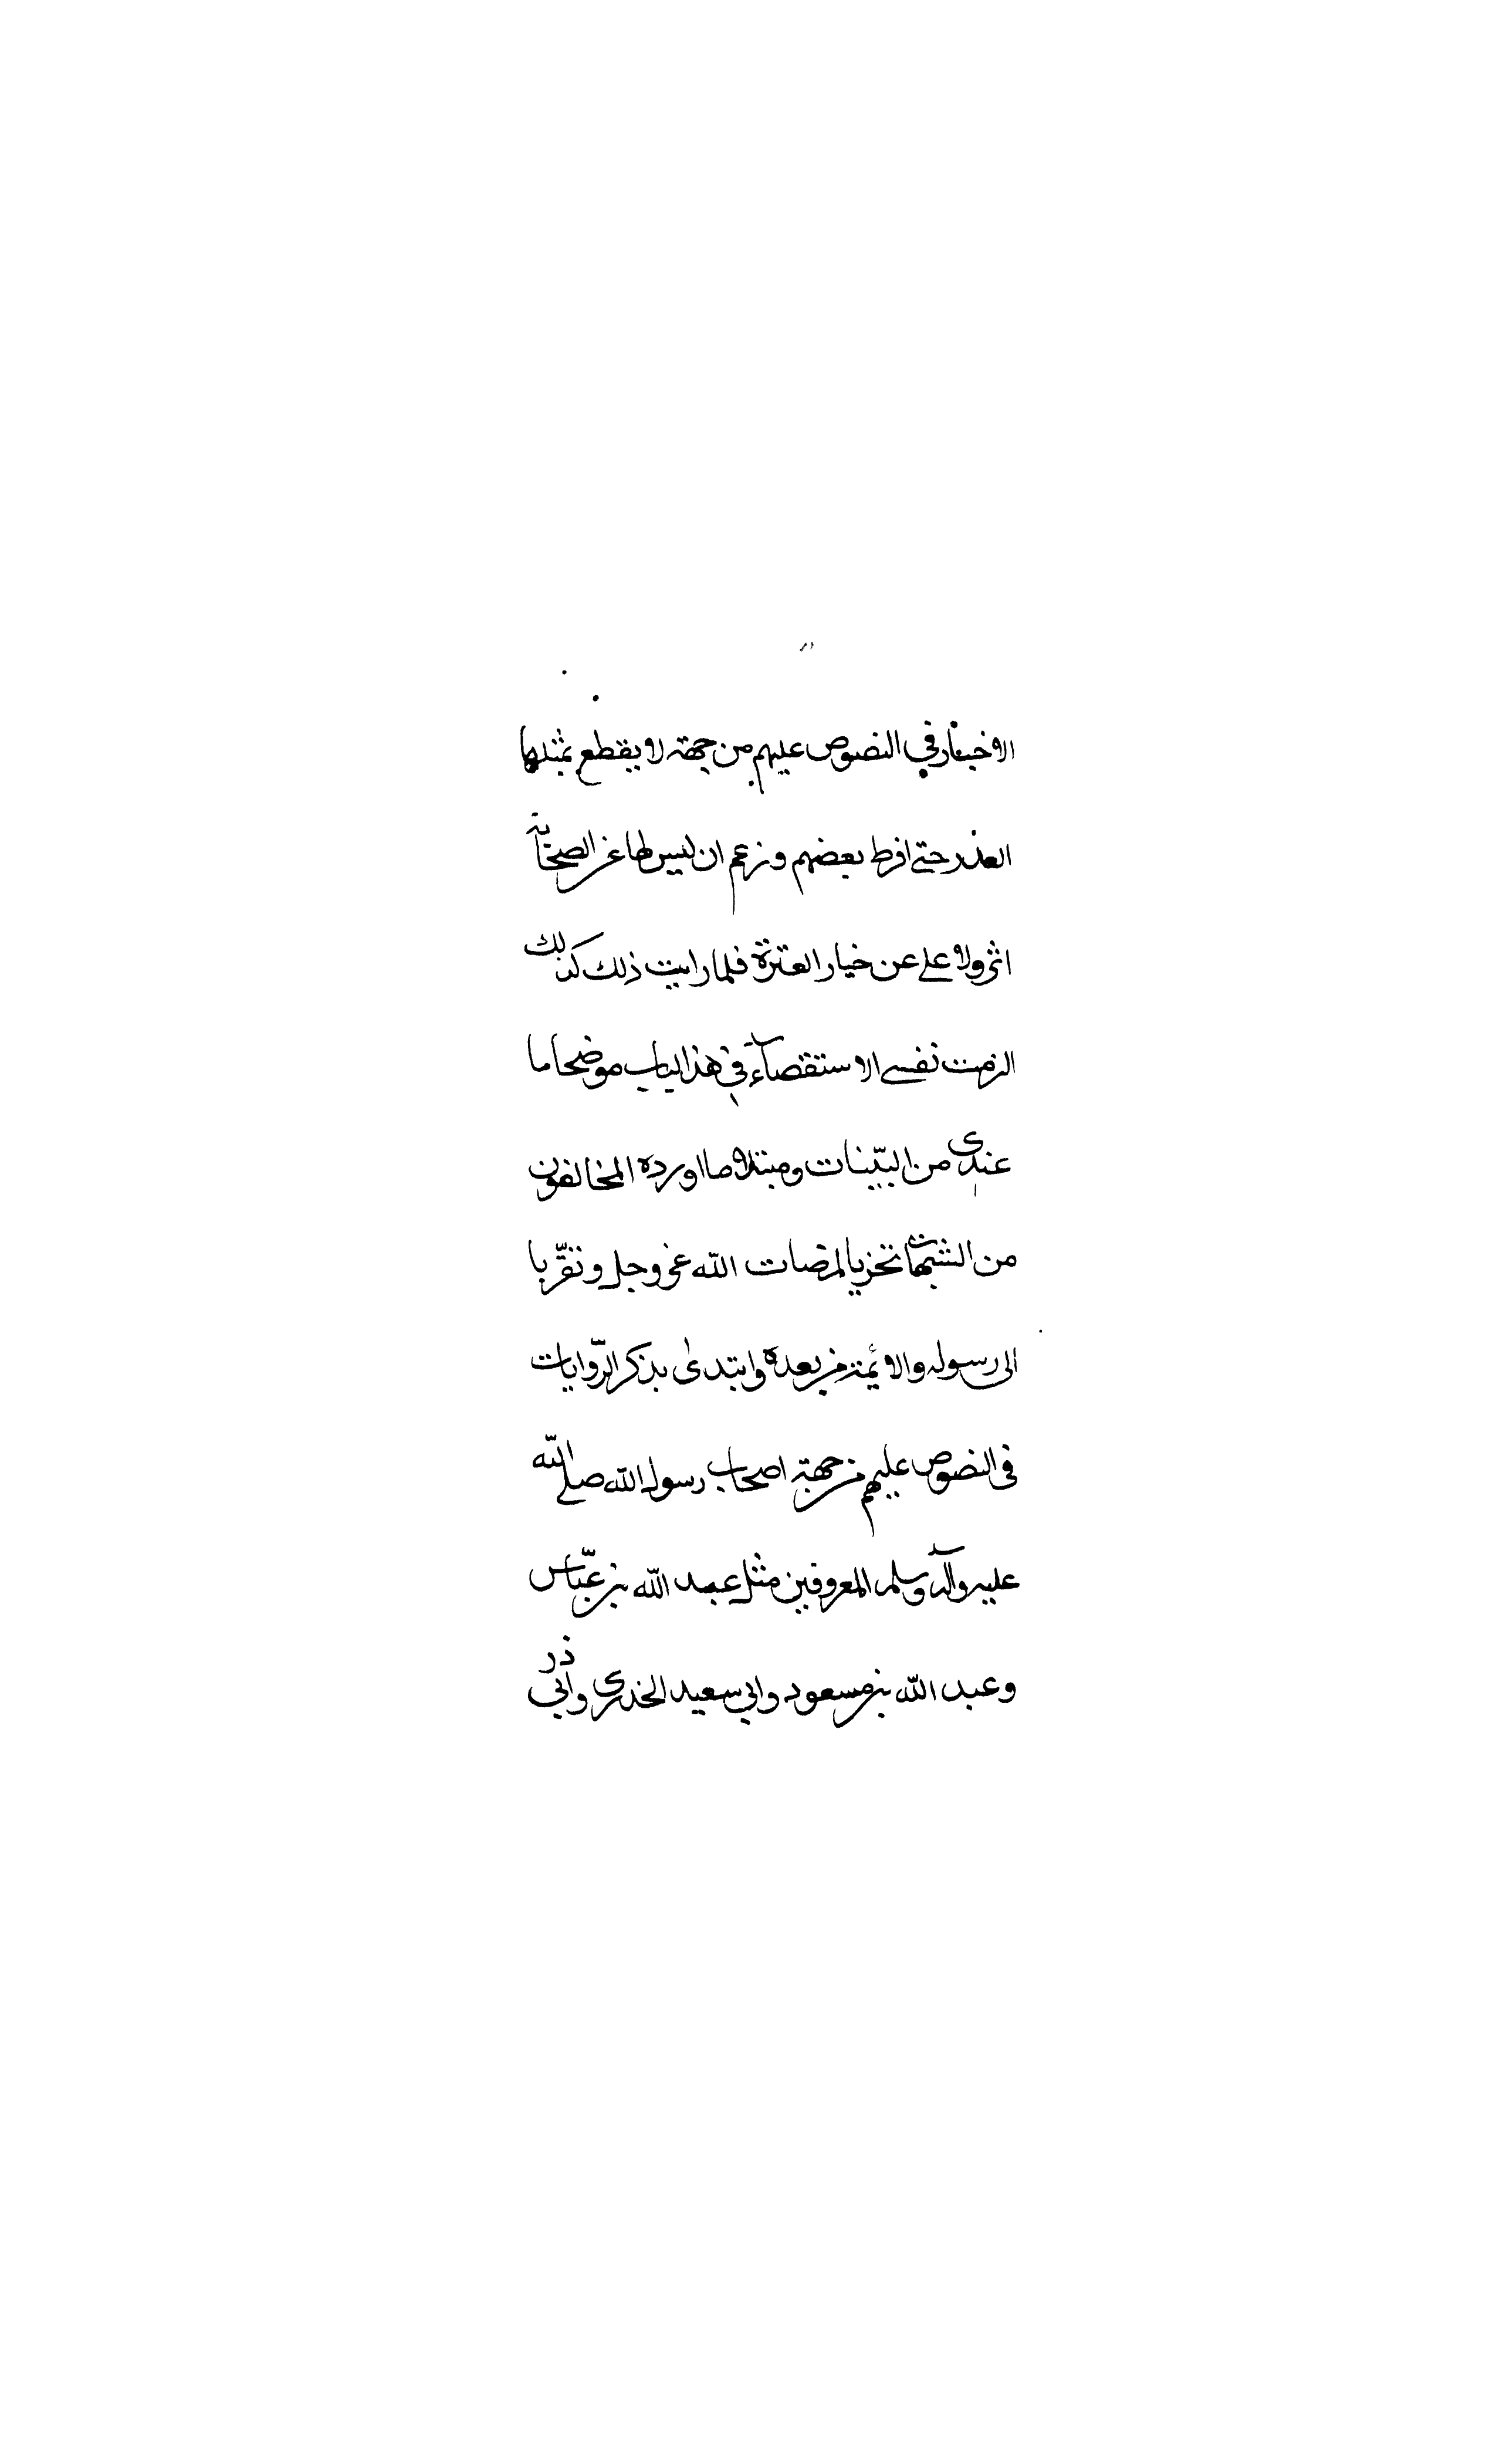 الاخبار في النصوص عليهم من جهة لا يقطع بمثلها
العذر حتى افرط بعضهم وزعم ان ليس لها عن الصحابة
اثر ولا على عن خيار العترة فلما رايت ذلك كذلك
الزمت نفسي الاستقصآء في هذا الباب موضحا ما
عندي من البيّنات ومبتلا ما اورده المخالفون
من الشبهات تحريا لمرضات الله عز وجل وتقرّبا
الى رسوله والائمة من بعده وابتدئ بذكر الرّوايات
في النصوص عليهم من جهة اصحاب رسول الله صلى الله
عليه وآله وسلم المعروفين مثل عبد الله بن عبّاس
وعبد الله بن مسعود وابي سعيد الخدري وابي ذر